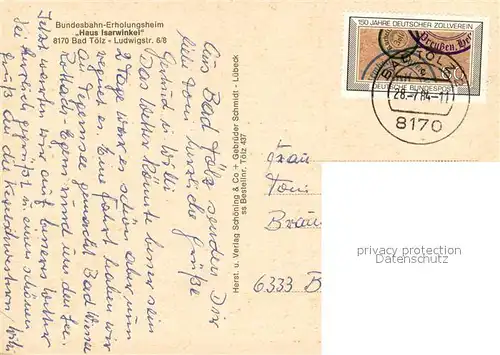 Bundesbahn-Erholungsheim
„Haus Isarwinkel"
8170 Bad Tölz - Ludwigstr. 6/8
Aus Bad Tölz senden Dir
liebe Toni herzliche Grüße
Gerund u. Willi
Das Wetter könnte besser sein
2 Tage war es schön aber nun
regnet es. Eine Fahrt haben wir
am Tegernsee gemacht Bad Wiessee
Rottach-Egern rund um den See.
Jetzt warten wir auf besseres Wetter
Sei herzlich gegrüßt u. einen schönen
Gruß an die Kegelschwestern Willi
Herst. u. Verlag Schöning & Co + Gebrüder Schmidt - Lübeck
ss Bestellnr. Tölz 437
150 JAHRE DEUTSCHER ZOLLVEREIN
Preußen
60
DEUTSCHE BUNDESPOST
BAD TÖLZ
28.-7.84-11
8170
Frau
Toni
Bräu
6333 B
privacy protection